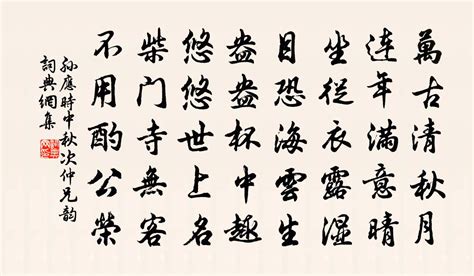 萬古清秋月
連年滿意晴
坐從衣露濕
目恐海雲生
盎盎杯中趣
悠悠世上名
柴门寺無客
不用酌公榮
孙應時中秋次仲兄韵
詞典網集